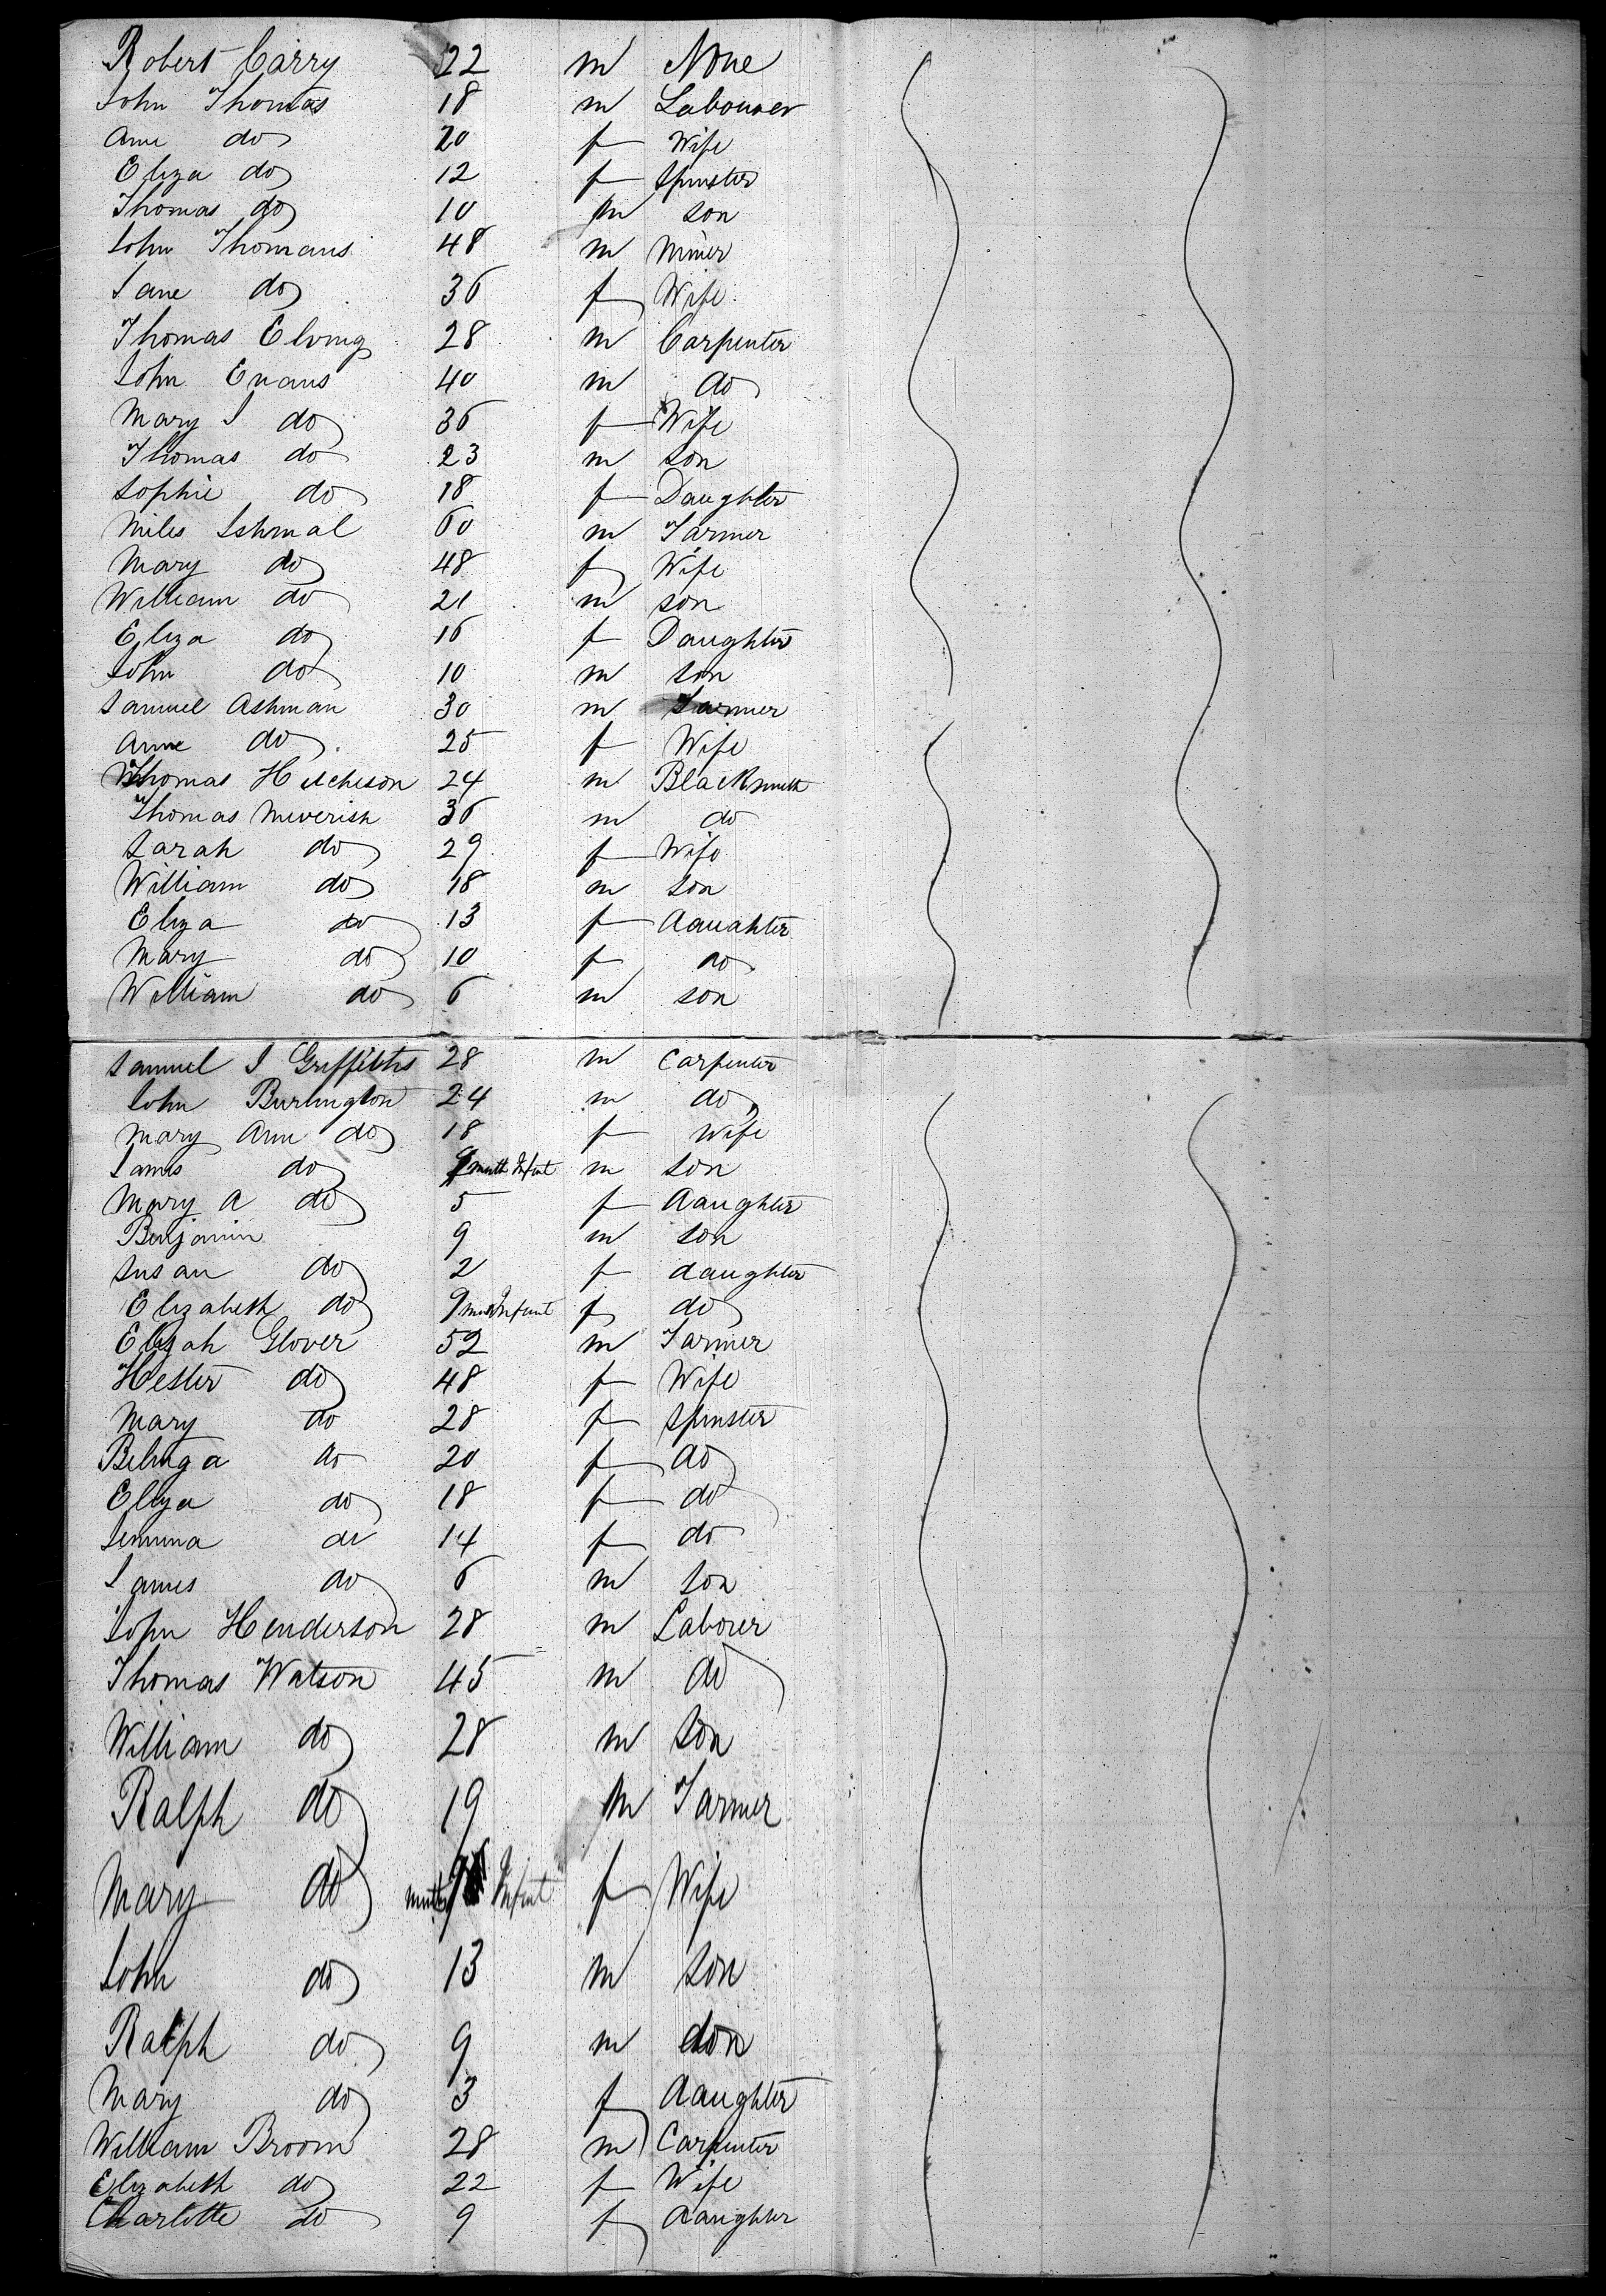 Robert Carry 22 m None
John Thomas 18 m Labourer
Ann do 20 f Wife
Eliza do 12 f Spinster
Thomas do 10 m son
John Thomans 48 m Miner
Jane do 36 f Wife
Thomas Elving 28 m Carpenter
John Evans 40 m do
Mary J do 36 f Wife
Thomas do 23 m son
Sophie do 18 f Daughter
Miles Ishmal 60 m Farmer
Mary do 48 f Wife
William do 21 m son
Eliza do 16 f Daughter
John do 10 m son
Samuel Ashman 30 m Farmer
Anne do 25 f Wife
Thomas Hutcheson 24 m Blacksmith
Thomas 36 m do
Sarah do 29 f Wife
William do 18 m son
Eliza do 13 f daughter
Mary do 10 f do
William do 6 m son
Samuel J Griffiths 28 m Carpenter
John Burlington 24 m do
Mary Ann do 18 f Wife
James do 9 month Infant m son
Mary A do 5 f daughter
Benjamin 9 m son
Susan do 2 f daughter
Elizabeth do 9 mos Infant f do
Elijah Glover 52 m Farmer
Hester do 48 f Wife
Mary do 28 f Spinster
do 20 f do
Eliza do 18 f do
Jemima do 14 f do
James do 6 m son
John Henderson 28 m Laborer
Thomas Watson 45 m do
William do 28 m son
Ralph do 19 m Farmer
Mary do Infant f Wife
John do 13 m son
Ralph do 9 m son
Mary do 3 f daughter
William Broom 28 m Carpenter
Elizabeth do 22 f Wife
Charlotte do 9 f daughter